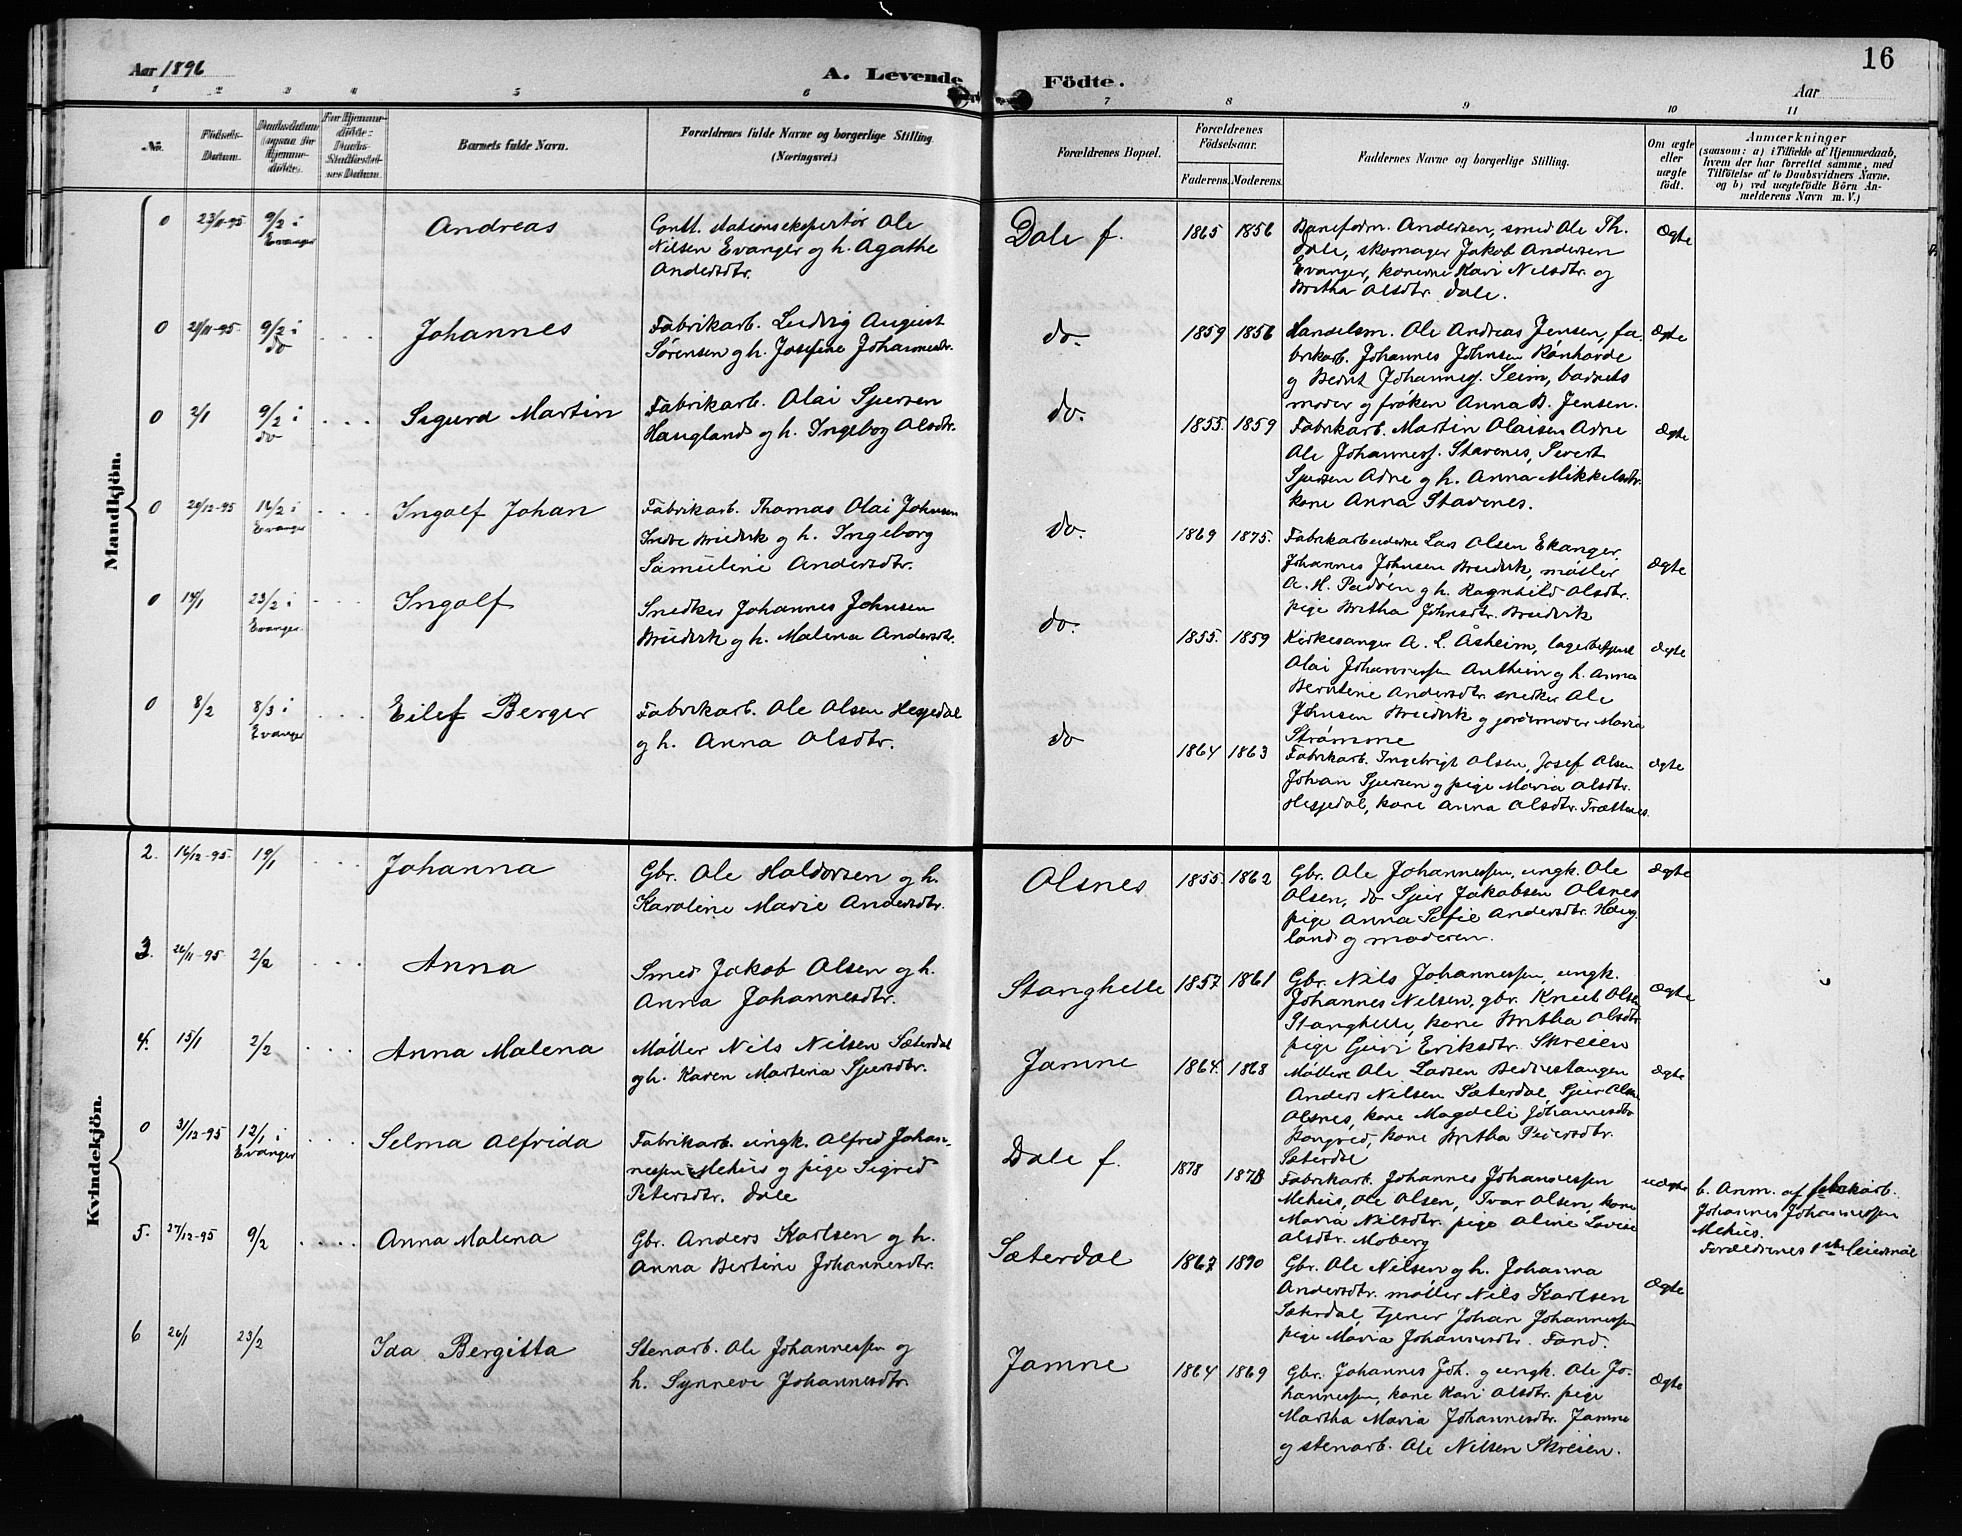 Aar 1896
A. Levende Födte.
16
Aar
1 2 3 4 5 6 7 8 9 10 11
No.
Födsels-
Datum.
Barnets fulde Navn.
Forældrenes fulde Navne og borgerlige Stilling
(Næringsvei.)
Forældrenes Bopæl.
Forældrenes
Födselsaar.
Faderens. Moderens.
Faddernes Navne og borgerlige Stilling.
Om ægte
eller
uægte
födt.
Anmærkninger
(saasom: a) i Tilfælde af Hjemmedaab,
hvem der har forrettet samme, med
Tilföielse af to Daabsvidners Navne.
og b) ved uægtefödte Börn An-
melderens Navn m. V.)
Mandkjön.
0 23/11-95 9/2 i
Evanger
Andreas
Const. stationsekspeditør Ole
Nilsen Evanger og h. Agathe
Andersdtr.
Dale f.
1865 1856
Baneform. Andersen, smed Ole Th.
Dale, skomager Jakob Andersen
Evanger, konerne Kari Nilsdtr. og
Britha Olsdtr. Dale.
Ægte
0 9/2 i
do
Johannes
Fabrikarb. Ludvig August
Sørensen og h. Josefine Johannesdtr.
do.
1859 1856
Handelsm. Ole Andreas Jensen, fa-
brikarb. Johannes Johnsen
og Bernt Johanness. Seim, barnets
moder og frøken Anna B. Jensen.
Ægte
0 2/1 9/2 i
do
Sigurd Martin
Fabrikarb. Olai Sjursen
Haugland og h. Ingeborg Olsdtr.
do.
1855. 1859
Fabrikarb. Martin Olaisen Adne
Ole Johanness. Stavenes, Sivert
Sjursen Adne og h. Anna Mikkelsdtr.
kone Anna Stavenes.
Ægte
0 16/2 i
Evanger
Ingolf Johan
Fabrikarb. Thomas Olai Johnsen
Indre Bruvik og h. Ingeborg
Samuline Andersdtr.
do.
1869 1875.
Fabrikarbeiderne Lars Olsen Ekanger,
Johannes Johnsen Bruvik, møller
A. H. og h. Ragnhild Olsdtr.
pige Britha Johnsdtr. Bruvik
Ægte
0 14/1 23/2 i
Evanger
Ingolf
Snedker Johannes Johnsen
Bruvik og h. Malena Andersdtr.
do.
1855. 1859
Kirkesanger A. L. Åsheim, lagerbetjent
Olai Johannessen og h. Anna
Berntine Andersdtr. snedker Ole
Johnsen Bruvik og jordemoder Maria
Strømme
Ægte
0 8/2 8/3 i
Evanger
Eilef Berger
Fabrikarb. Ole Olsen Hesjedal
og h. Anna Olsdtr.
do
1864 1863
Fabrikarb. Ingebrigt Olsen, Josef Olsen
Johan Sjursen og pige Maria Olsdtr.
Hesjedal, kone Anna Olsdtr. Trættenes.
Ægte
Kvindekjön.
2. 16/12-95. 19/1
Johanna
Gbr. Ole Haldorsen og h.
Karoline Marie Andersdtr.
Olsnes
1855. 1862
Gbr. Ole Johannessen, ungk. Ole
Olsen, do Sjur Jakobsen Olsnes
pige Anna Sofie Andersdtr. Haug-
land og moderen.
Ægte
3. 26/11-95. 2/2
Anna
Smed Jakob Olsen og h.
Anna Johannesdtr.
Stanghelle
1857 1861
Gbr. Nils Johannessen, ungk.
Johannes Nilsen, gbr. Knut Olsen
Stanghelle, kone Britha Olsdtr
pige Guri Eriksdtr. Skreien
Ægte
4. 15/1 2/2
Anna Malena
Møller Nils Nilsen Sæterdal
og h. Karen Martena Sjursdtr.
Jamne
1864. 1868
Møllere Ole Larsen
Anders Nilsen Sæterdal, Sjur Olsen
Olsnes, kone Magdeli Johannesdtr
kone Britha Pedersdtr.
Sæterdal
Ægte
0 31/12-95 12/1 i
Evanger
Selma Alfrida
Fabrikarb. ungk. Alfred Johan-
nessen Mehus og pige Sigrid
Petersdtr. Dale
Dale f.
1878 1873
Fabrikarb. Johannes Johannessen
Mehus, Ole Olsen, Ivar Olsen, kone
Maria Nilsdtr. pige Oline Lovise
Olsdtr. Moberg
uægte
b. Anm. af fabrikarb.
Johannes Johannessen
Mehus.
Forældrenes 1ste leiermål
5. 27/12-95 9/2
Anna Malena
Gbr. Anders Karlsen og h.
Anna Bertine Johannesdtr.
Sæterdal
1867 1870
Gbr. Ole Nilsen og h. Johanna
Andersdtr. møller Nils Karlsen
Sæterdal, tjener Johan Johannessen
pige Maria Johannesdtr. Fand.
Ægte
6 26/1 23/2
Ida Bergitta
Stenarb. Ole Johannessen og
h. Synneve Johannesdtr.
Jamne
1864 1869
Gbr. Johannes Joh. og ungk. Ole Jo-
hannessen, kone Kari Olsdtr. pige
Martha Maria Johannesdtr. Jamne
og stenarb. Ole Nilsen Skreien.
Ægte